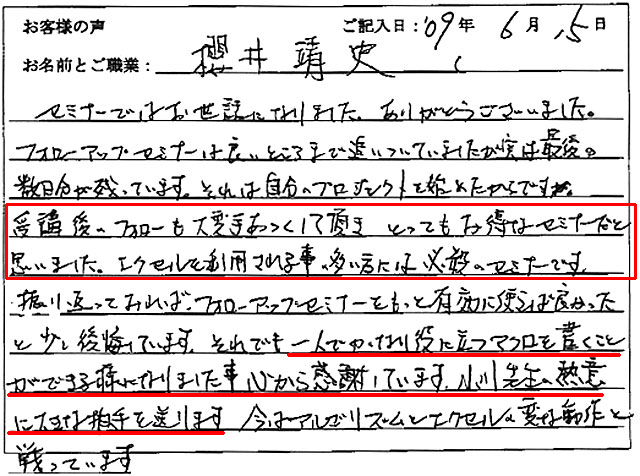 お客様の声 ご記入日：'09年 6月 15日
お名前とご職業： 櫻井 靖史 （
セミナーではお世話になりました。ありがとうございました。
フォローアップセミナーは良いところまで追いついていましたが実は最後の
数日分が残っています。それは自分のプロジェクトを始めたからですが。
受講後のフォローも大変手あつくして頂き とってもお得なセミナーだと
思いました。エクセルを利用される事の多い方には必殺のセミナーです。
振り返ってみれば、フォローアップセミナーをもっと有効に使えば良かった
と少し後悔しています。それでも一人でかなり役に立つマクロを書くこと
ができる様になりました事 心から感謝しています。小川先生の熱意
に大きな拍手を送ります 今はアルゴリズムとエクセルの変な動作と
戦っています